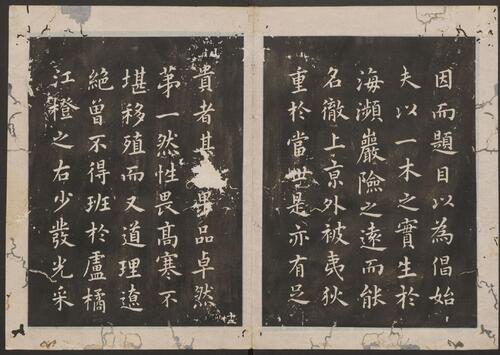 因而題目以為倡始
夫以一木之實生於
海瀕巖險之遠而能
名徹上亰外被夷狄
重於當世是亦有足
貴者其品卓然
苐一然性畏髙寒不
堪移殖而又道理遼
絶曾不得班於盧橘
江橙之右少發光采